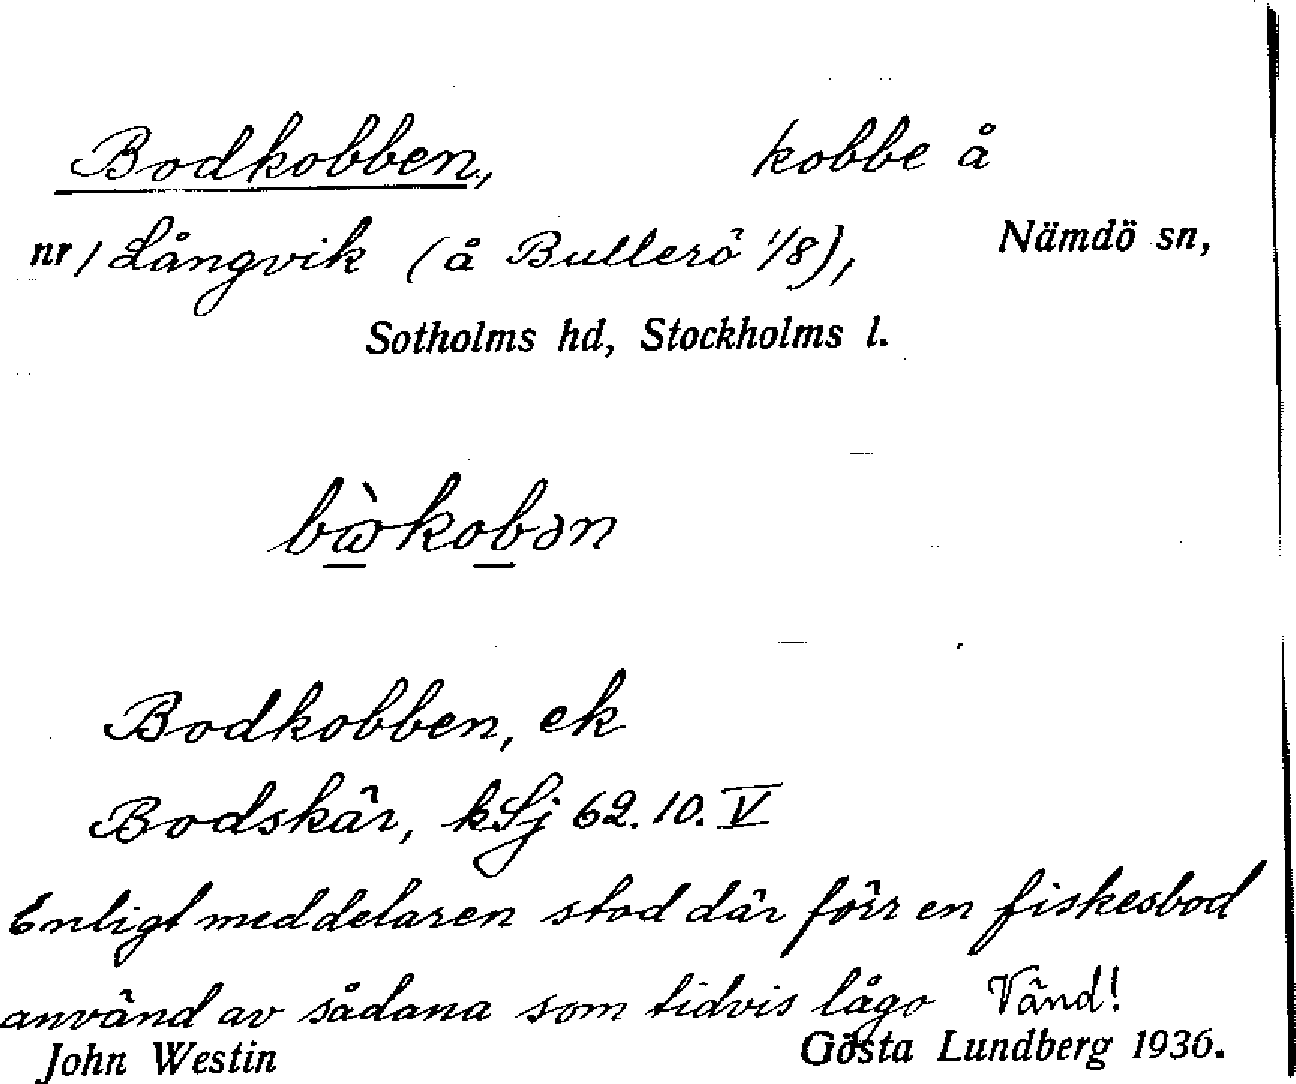 Bodkobben, kobbe å
nr / Långvik (å Bullerö 1/8), Nämdö sn,
Sotholms hd, Stockholms l.
bὼkobən
Bodkobben, ek
Bodskär, kSj 62.10.V
Enligt meddelaren stod där förr en fiskesbod
använd av sådana som tidvis lågo Vänd!
John Westin Gösta Lundberg 1936.